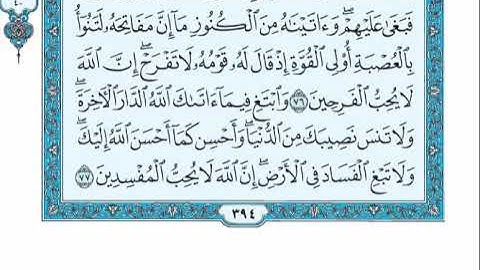 فَبَغَىٰ عَلَيْهِمْ ۖ وَءَاتَيْنَٰهُ مِنَ ٱلْكُنُوزِ مَآ إِنَّ مَفَاتِحَهُۥ لَتَنُوٓأُ
بِٱلْعُصْبَةِ أُو۟لِى ٱلْقُوَّةِ إِذْ قَالَ لَهُۥ قَوْمُهُۥ لَا تَفْرَحْ ۖ إِنَّ ٱللَّهَ
لَا يُحِبُّ ٱلْفَرِحِينَ ٧٦ وَٱبْتَغِ فِيمَآ ءَاتَىٰكَ ٱللَّهُ ٱلدَّارَ ٱلْءَاخِرَةَ ۖ
وَلَا تَنسَ نَصِيبَكَ مِنَ ٱلدُّنْيَا ۖ وَأَحْسِن كَمَآ أَحْسَنَ ٱللَّهُ إِلَيْكَ ۖ
وَلَا تَبْغِ ٱلْفَسَادَ فِى ٱلْأَرْضِ ۖ إِنَّ ٱللَّهَ لَا يُحِبُّ ٱلْمُفْسِدِينَ ٧٧
٣٩٤